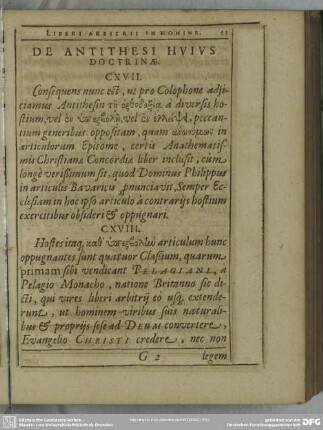 LIBERI ARBITRII IN HOMINE.
DE ANTITHESI HVIVS
DOCTRINÆ.
CXVII.
Consequens nunc est, ut pro Colophone adji-
ciamus Antithesin τῇ ὀρθοδοξίᾳ à diversis ho-
stium, vel ἐν ὑπερβολῇ, vel ἐν ἐλλείψει, peccan-
tium generibus oppositam, quam in
articulorum Epitome, certis Anathematis-
mis Christianæ Concordiæ liber inclusit, cùm
longè verissimum sit, quod Dominus Philippus
in articulis Bavaricis pronunciavit, Semper Ec-
clesiam in hoc ipso articulo à contrarijs hostium
exercitibus obsideri & oppugnari.
CXVIII.
Hostes itaq; καθ᾽ ὑπερβολὴν articulum hunc
oppugnantes sunt quatuor Classium, quarum
primam sibi vendicant PELAGIANI, à
Pelagio Monacho, natione Britanno sic di-
cti, qui vires liberi arbitrij eò usq; extende-
runt, ut hominem viribus suis naturali-
bus & proprijs sese ad DEUM convertere,
Evangelio CHRISTI credere, nec non
G 2 legem